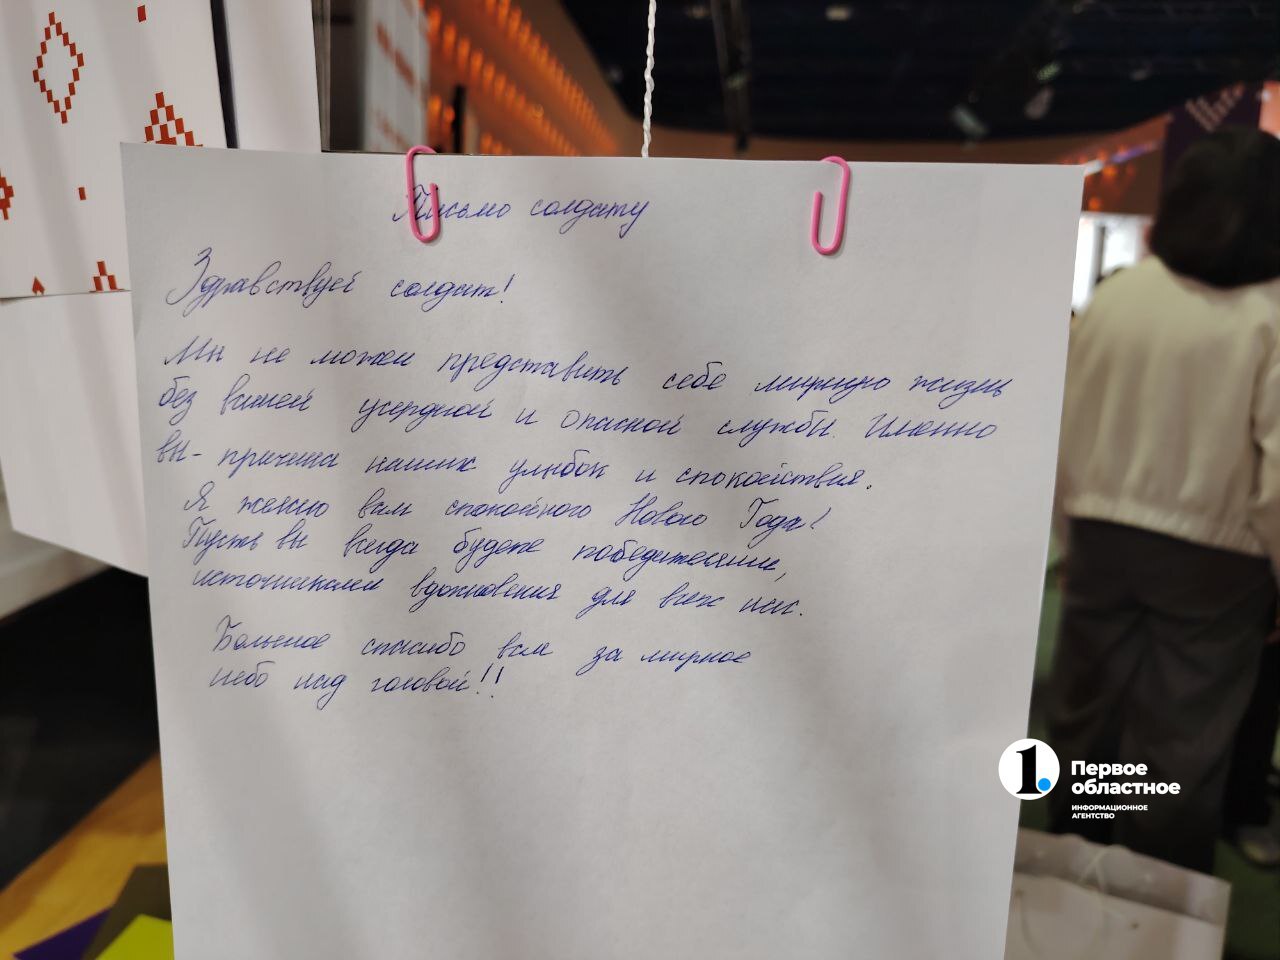 Письмо солдату
Здравствуй солдат!
Мы не можем представить себе мирную жизнь
без вашей усердной и опасной службы. Именно
вы - причина наших улыбок и спокойствия.
Я желаю вам спокойного Нового Года!
Пусть вы всегда будете победителями,
источниками вдохновения для всех нас.
Большое спасибо вам за мирное
небо над головой!!
1.
Первое
областное
ИНФОРМАЦИОННОЕ
АГЕНТСТВО